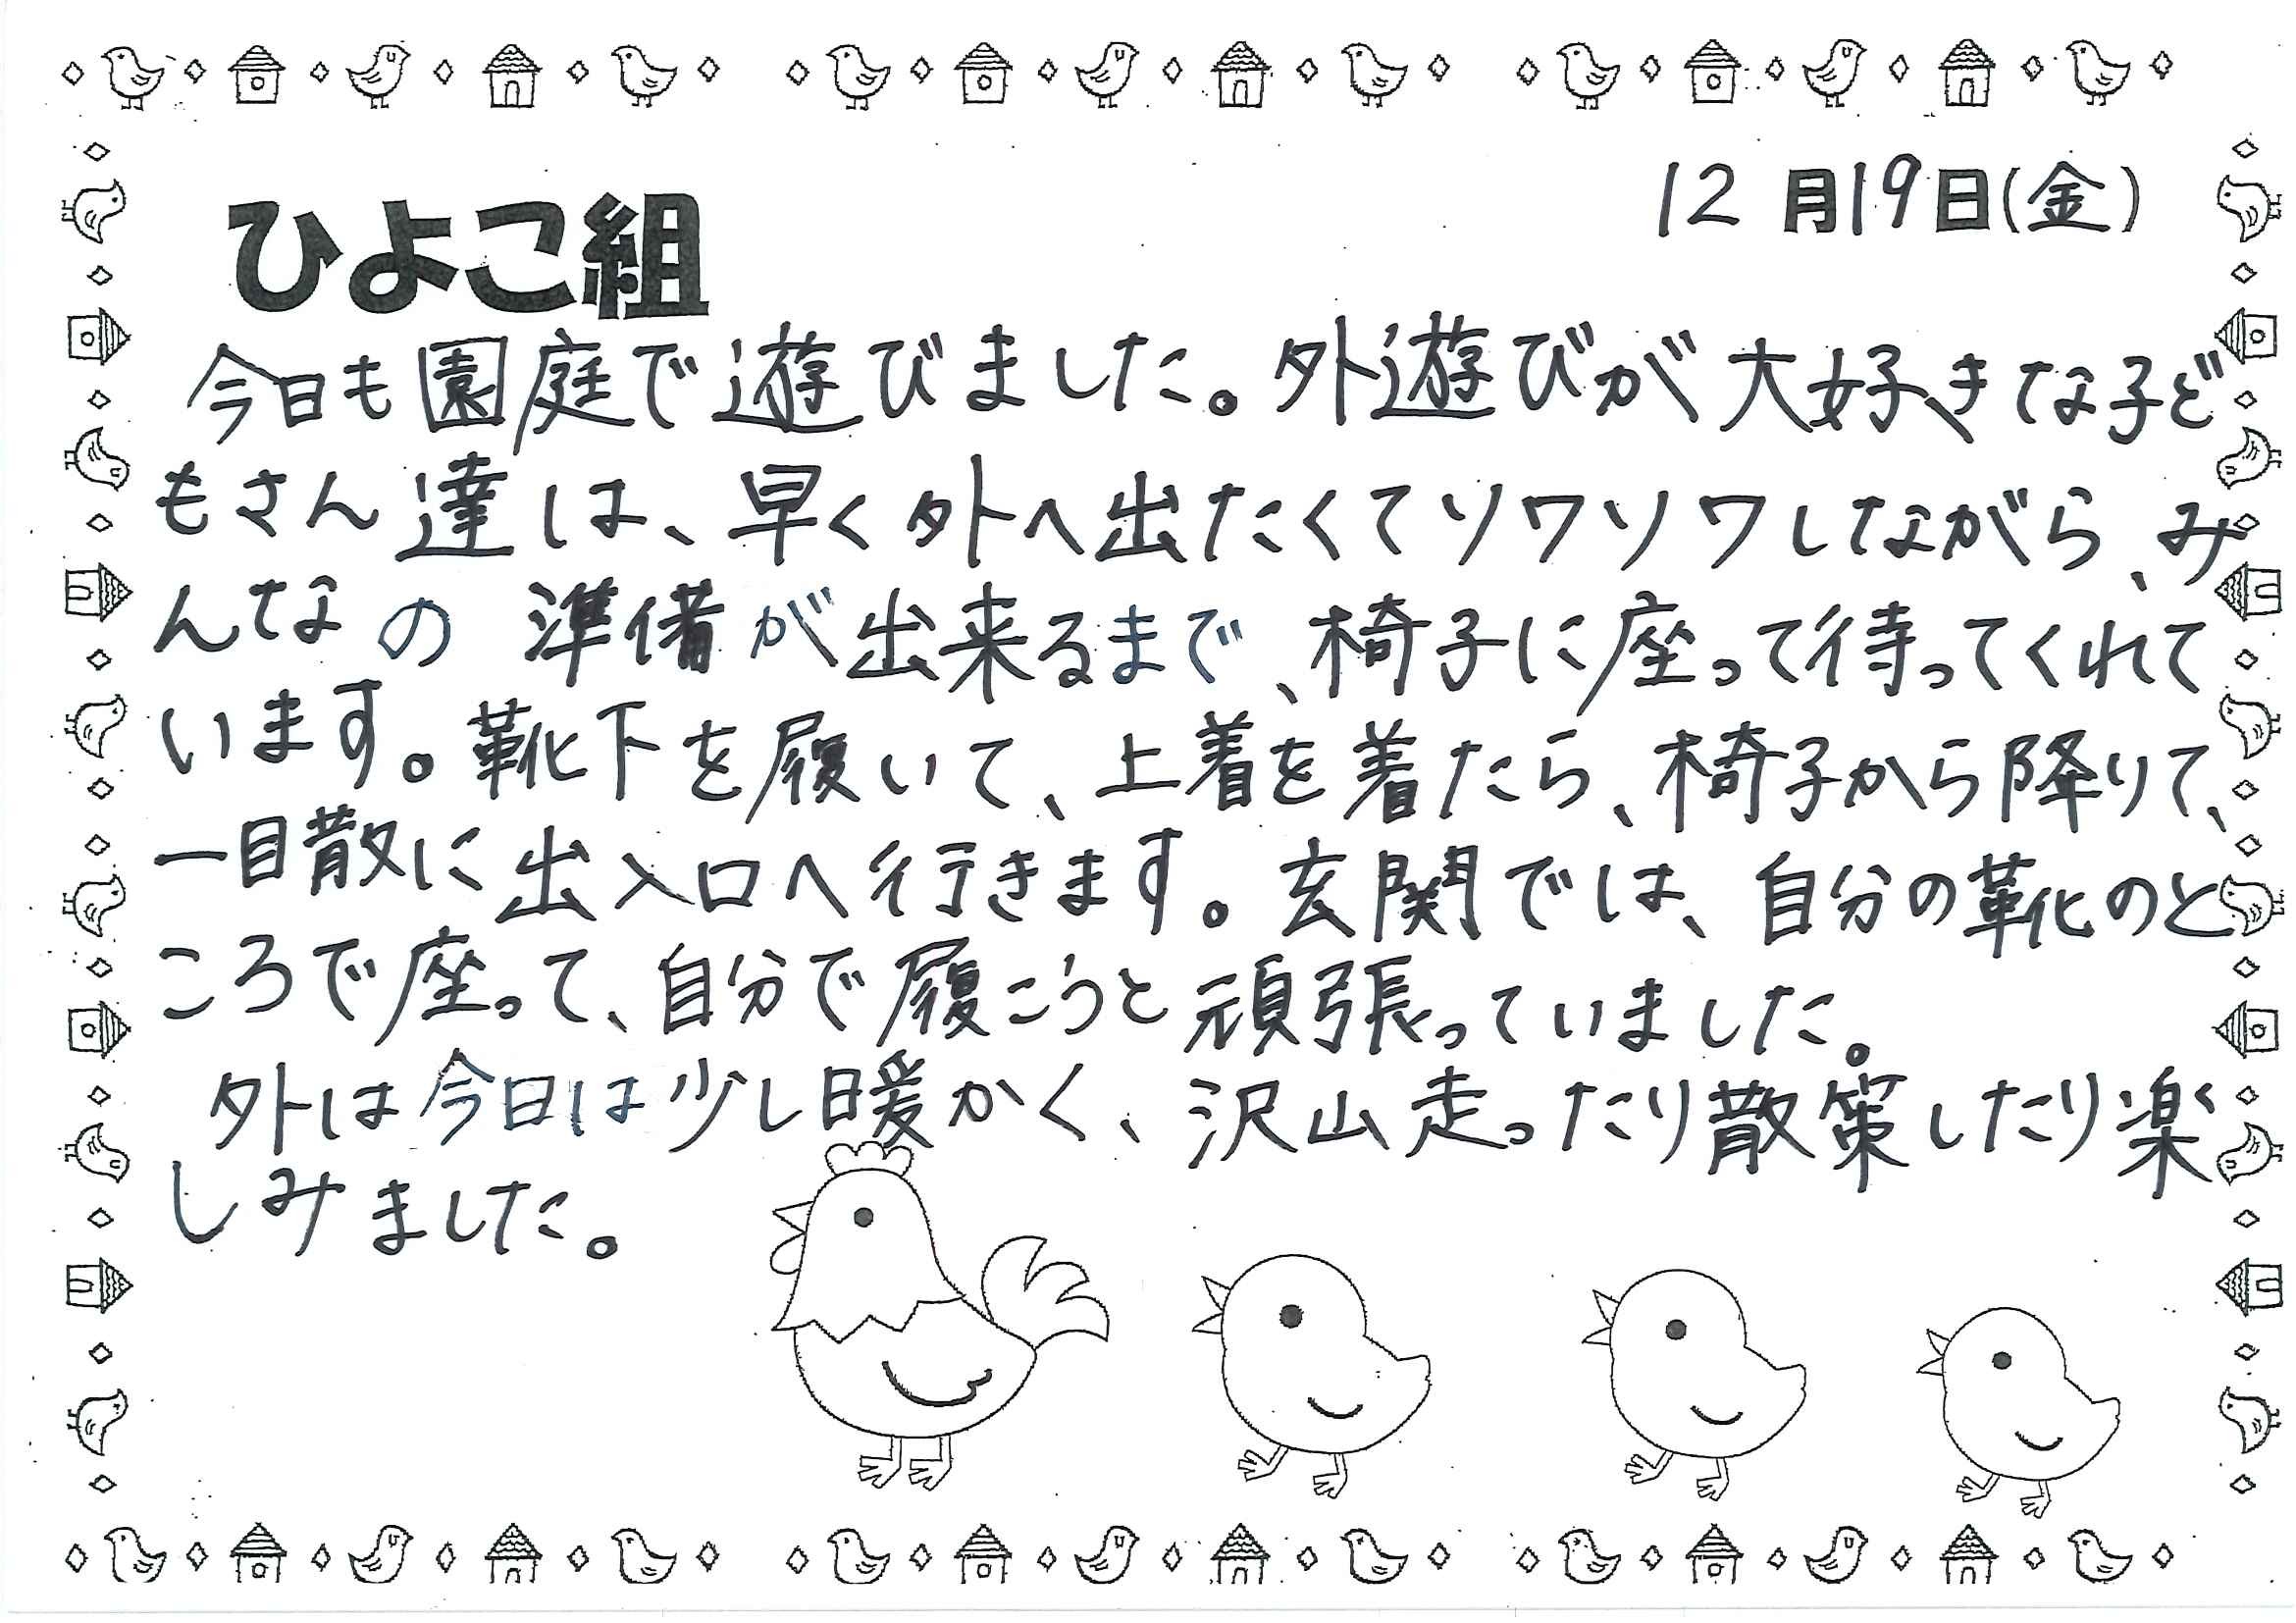 12月19日(金)
ひよこ組
今日も園庭で遊びました。外遊びが大好きな子ど
もさん達は、早く外へ出たくてソワソワしながら、み
んなの準備が出来るまで、椅子に座って待ってくれて
います。靴下を履いて、上着を着たら、椅子から降りて、
一目散に出入口へ行きます。玄関では、自分の靴のと
ころで座って、自分で履こうと頑張っていました。
外は今日は少し暖かく、沢山走ったり散策したり楽
しみました。